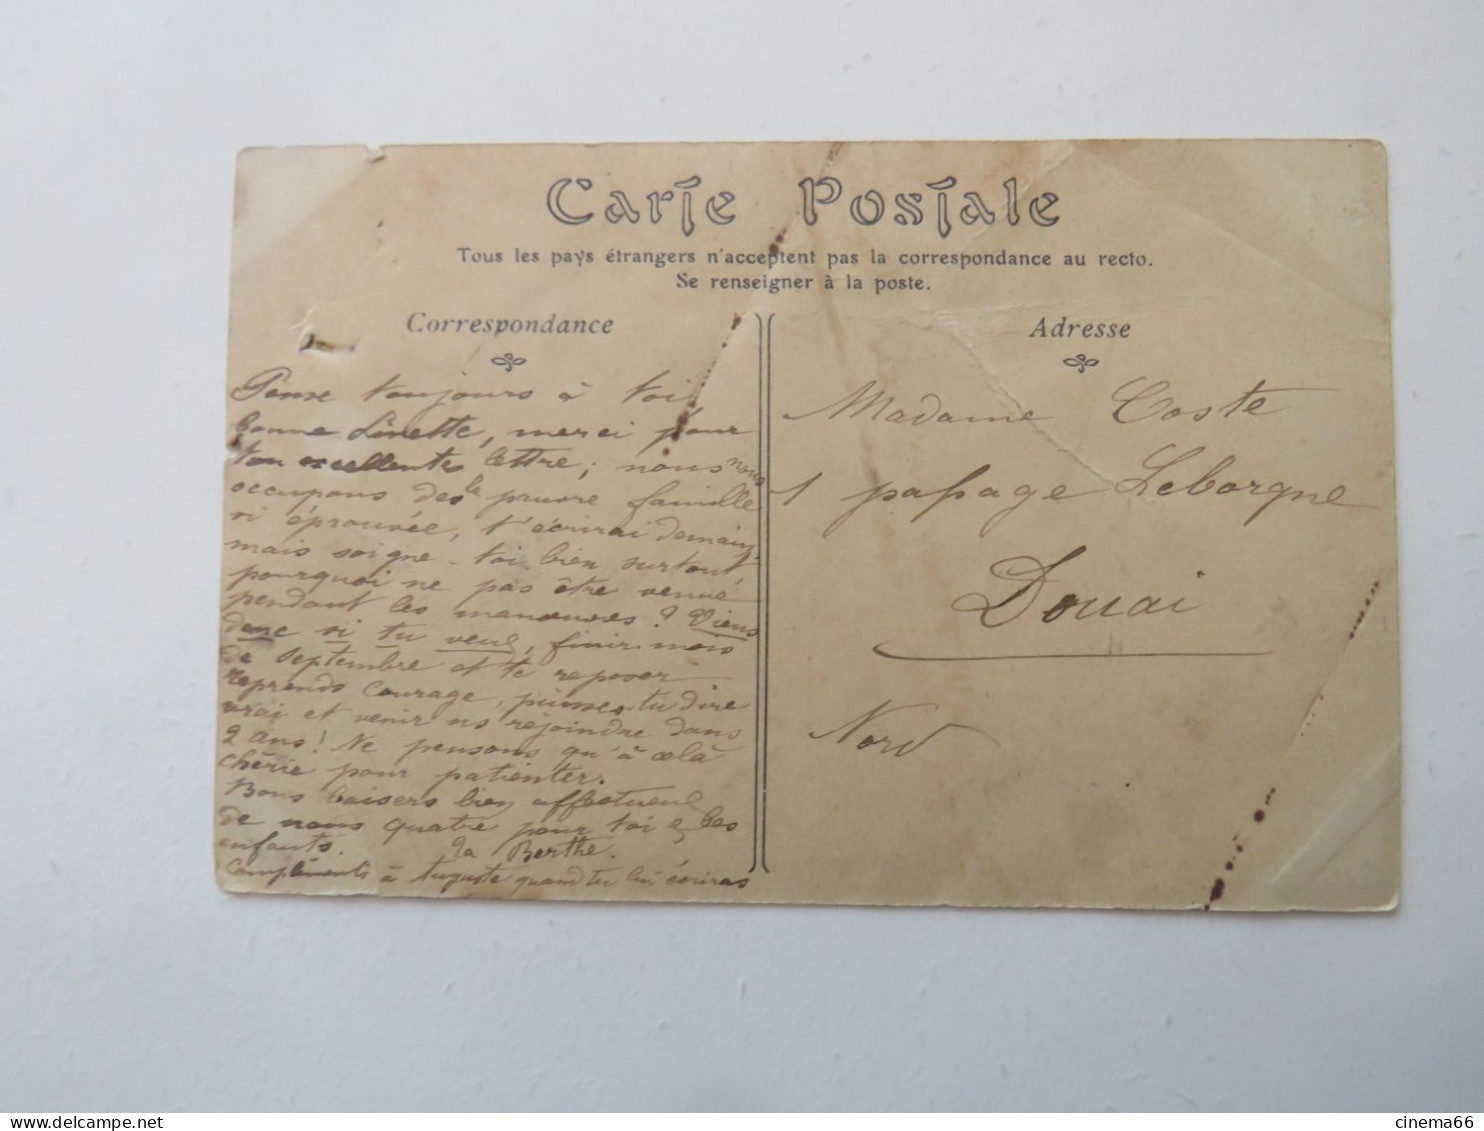 Carte Postale
Tous les pays étrangers n'acceptent pas la correspondance au recto.
Se renseigner à la poste.
Correspondance
Pense toujours à toi
bonne Linette, merci pour
ton excellente lettre, nous nous
occupons de la pauvre famille
si éprouvée, t'écrirai demain,
mais soigne-toi bien surtout
pourquoi ne pas être venue
pendant les manœuvres? Viens
donc si tu veux, finir mois
de Septembre et te reposer
reprends courage, puisses-tu dire
vrai et venir ns rejoindre dans
2 ans! Ne pensons qu'à celà
chérie pour patienter.
Bons baisers bien affectueux
de nous quatre pour toi & les
enfants. ta Berthe.
Compliments à Auguste quand tu lui écriras
Adresse
Madame Coste
1 passage Leborgne
Douai
Nord
cinema66